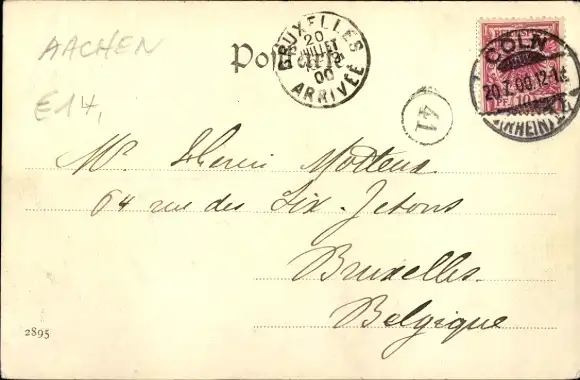 AACHEN
E14,
Postkarte
BRUXELLES
20
JUILLET
00
ARRIVÉE
CÖLN
20.7.00.12-1
(RHEIN)
41
Mr.
Mortens
64 rue des Six-Jetons
Bruxelles
Belgique
2895